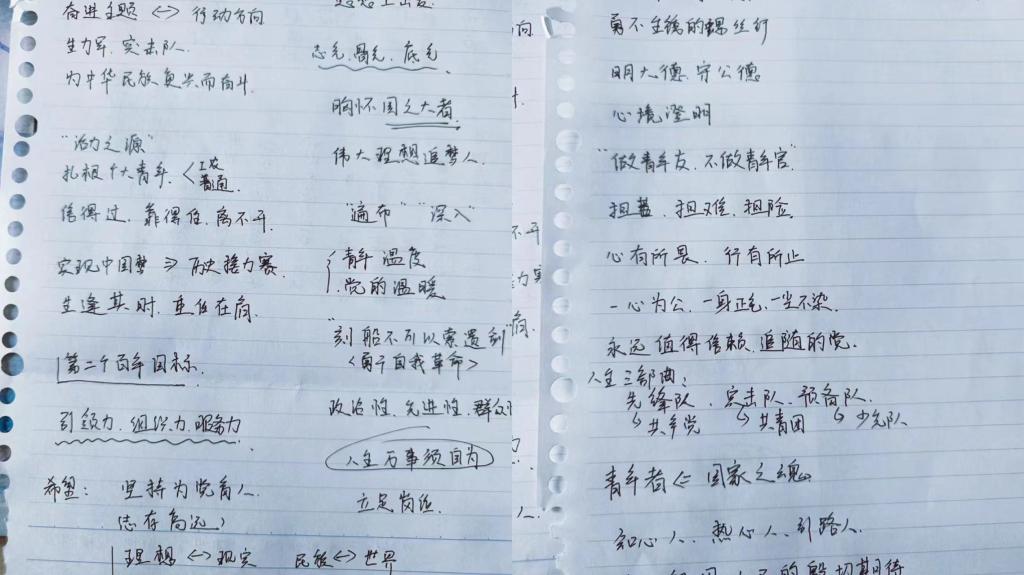 奋进主题 <-> 行动方向
生力军、突击队.
为中华民族复兴而奋斗.
"活力之源"
扎根广大青年. < 工农 普通
信得过、靠得住、离不开
实现中国梦 => 历史接力赛.
生逢其时、重任在肩.
第二个百年目标.
引领力、组织力、服务力
希望: 坚持为党育人.
(志存高远)
理想 <-> 现实 民族 <-> 世界
志气、骨气、底气
胸怀国之大者.
伟大理想追梦人.
"遍布" "深入"
青年温度
党的温暖
"刻船不可以索遗剑"
<勇于自我革命>
政治性、先进性、群众
人生万事须自为
立足岗位.
向
勇不生锈的螺丝钉
明大德、守公德
心境澄明
"做青年友、不做青年官"
担苦、担难、担险.
心有所畏、行有所止
一心为公、一身正气、一尘不染.
永远值得信赖、追随的党.
人生三部曲:
先锋队、突击队、预备队.
共产党 共青团 少先队
青年者 <= 国家之魂
知心人、热心人、引路人.
的殷切期待